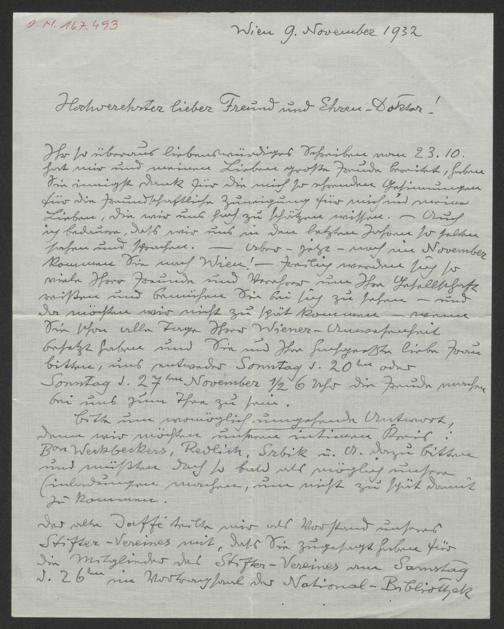 J. N. 167.493
Wien 9. November 1932
Hochverehrter lieber Freund und Ehren-Doktor!
Ihr so überaus liebenswürdiges Schreiben vom 23.10.
hat mir und meinen Lieben große Freude bereitet, haben
Sie innigst Dank für die mich so ehrenden Gesinnungen
für die freundschaftliche Zuneigung für mich und meine
Lieben, die wir uns hoch zu schätzen wissen. — Auch
ich bedaure, daß wir uns in den letzten Jahren so selten
sehen und sprachen. — Aber – jetzt – noch im November
kommen Sie nach Wien! — Freilich werden sich so
viele Ihrer Freunde und Verehrer um Ihre Gesellschaft
reißen und bemühen Sie bei sich zu sehen – und
da möchten wir nicht zu spät kommen – wenn
Sie schon alle Tage Ihrer Wiener-Anwesenheit
besetzt haben und Sie und Ihre hochgeehrte liebe Frau
bitten, uns entweder Sonntag d. 20ten oder
Sonntag d. 27ten November ½ 6 Uhr die Freude machen
bei uns zum Thee zu sein.
Bitte um womöglich umgehende Antwort,
denn wir möchten unseren intimen Kreis:
Bar Weckbeckers, Redlich, Srbik u. A. dazu bitten
und müßten doch so bald als möglich unsere
Einladungen machen, um nicht zu spät damit
zu kommen.
Der alte Jaffé teilte mir als Vorstand unseres
Stifter-Vereines mit, daß Sie zugesagt haben für
die Mitglieder des Stifter-Vereines am Samstag
d. 26ten im Vortragssaal der National-Bibliothek